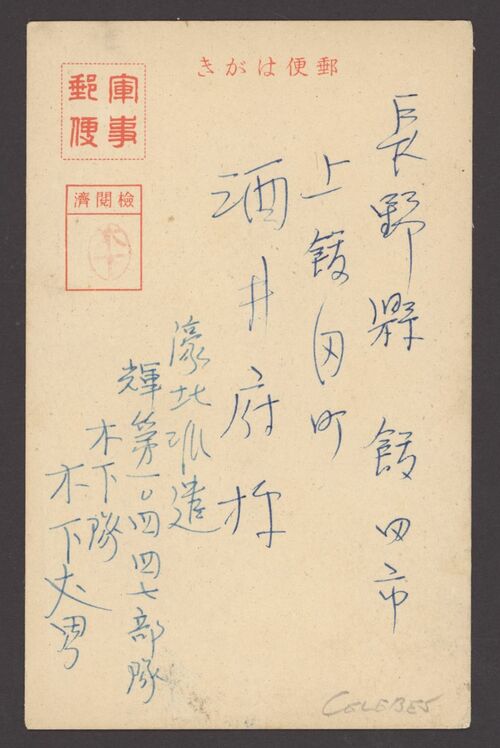 郵便はがき
軍事
郵便
檢閲濟
長野縣飯田市
上飯田町
酒井府
濠北派遣
輝第一〇四四七部隊
木下隊
木下丈男
CELEBES